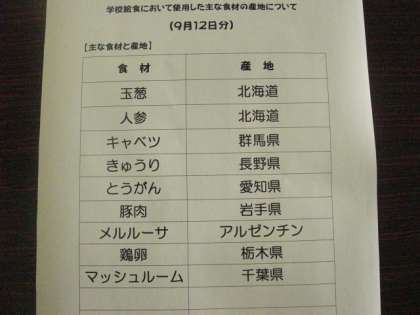 学校給食において使用した主な食材の産地について
(9月12日分)
【主な食材と産地】
食 材 産 地
玉葱 北海道
人参 北海道
キャベツ 群馬県
きゅうり 長野県
とうがん 愛知県
豚肉 岩手県
メルルーサ アルゼンチン
鶏卵 栃木県
マッシュルーム 千葉県